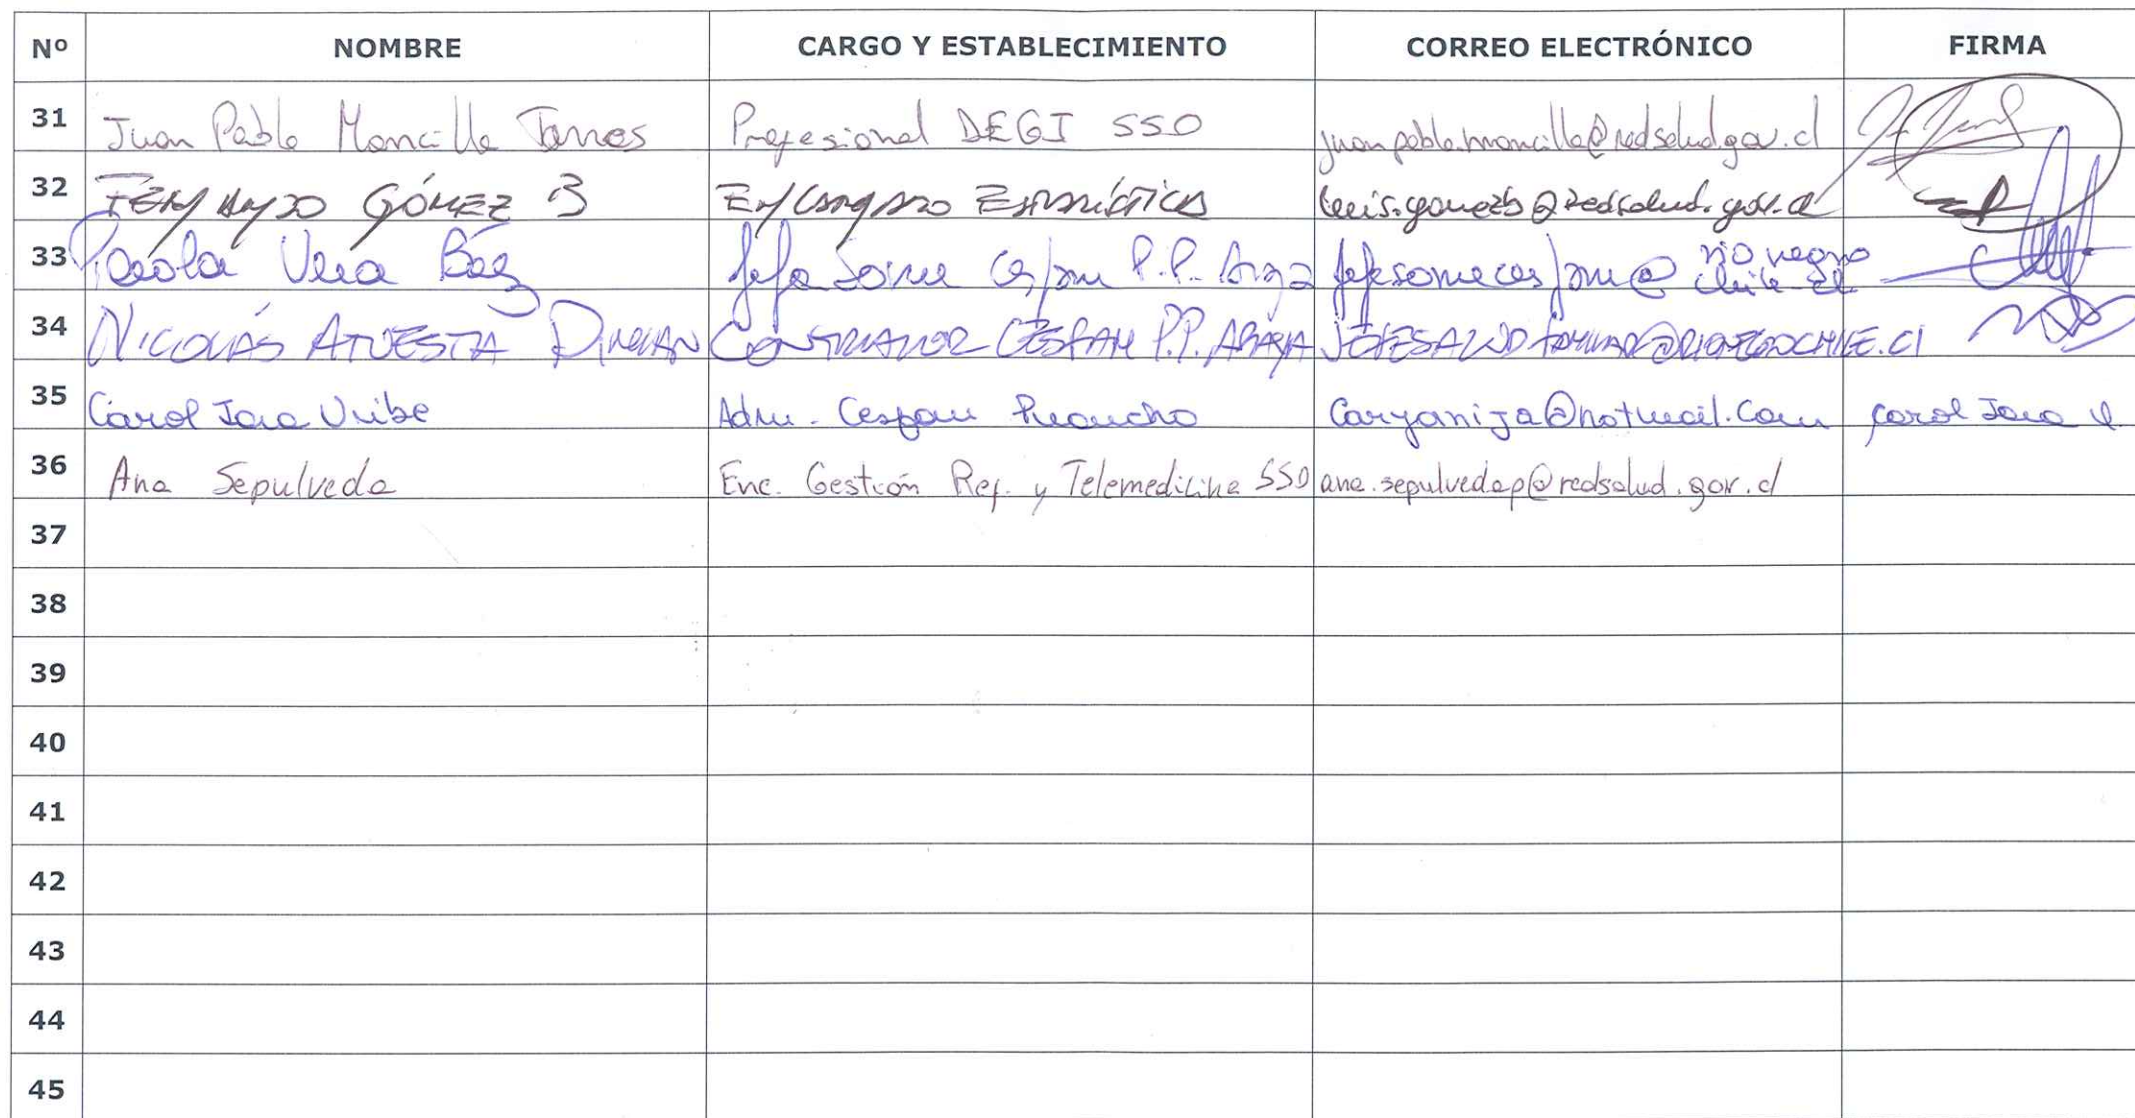 Nº NOMBRE CARGO Y ESTABLECIMIENTO CORREO ELECTRÓNICO FIRMA
31 Juan Pablo Mancilla Torres Profesional DEGI SSO juanpablo.mancilla@redsalud.gov.cl
32 FERNANDO GÓMEZ B Encargado Estadística luis.gomezb@redsalud.gov.cl
33 Paola Vera Báez Jefa Some Cesfam P.P. jefesomecesfam@ rio negro
chile.cl
34 NICOLÁS ATUESTA CESFAM P.P. ARAYA JEFESALUDFAMILIAR@RIONEGROCHILE.Cl
35 Carol Jara Uribe Adm. Cesfam Caryanija@hotmail.com Carol Jara U
36 Ana Sepulveda Enc. Gestión Ref. y Telemedicina SSO ana.sepulvedap@redsalud.gov.cl
37
38
39
40
41
42
43
44
45